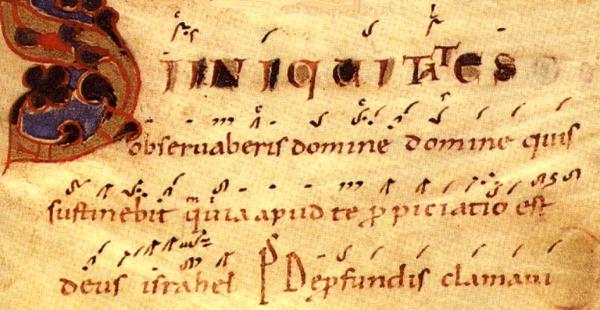 SI INIQUITATES
obseruaberis domine domine quis
sustinebit quia apud te ꝓpiciatio est
deus israhel P De ꝓfundis clamaui